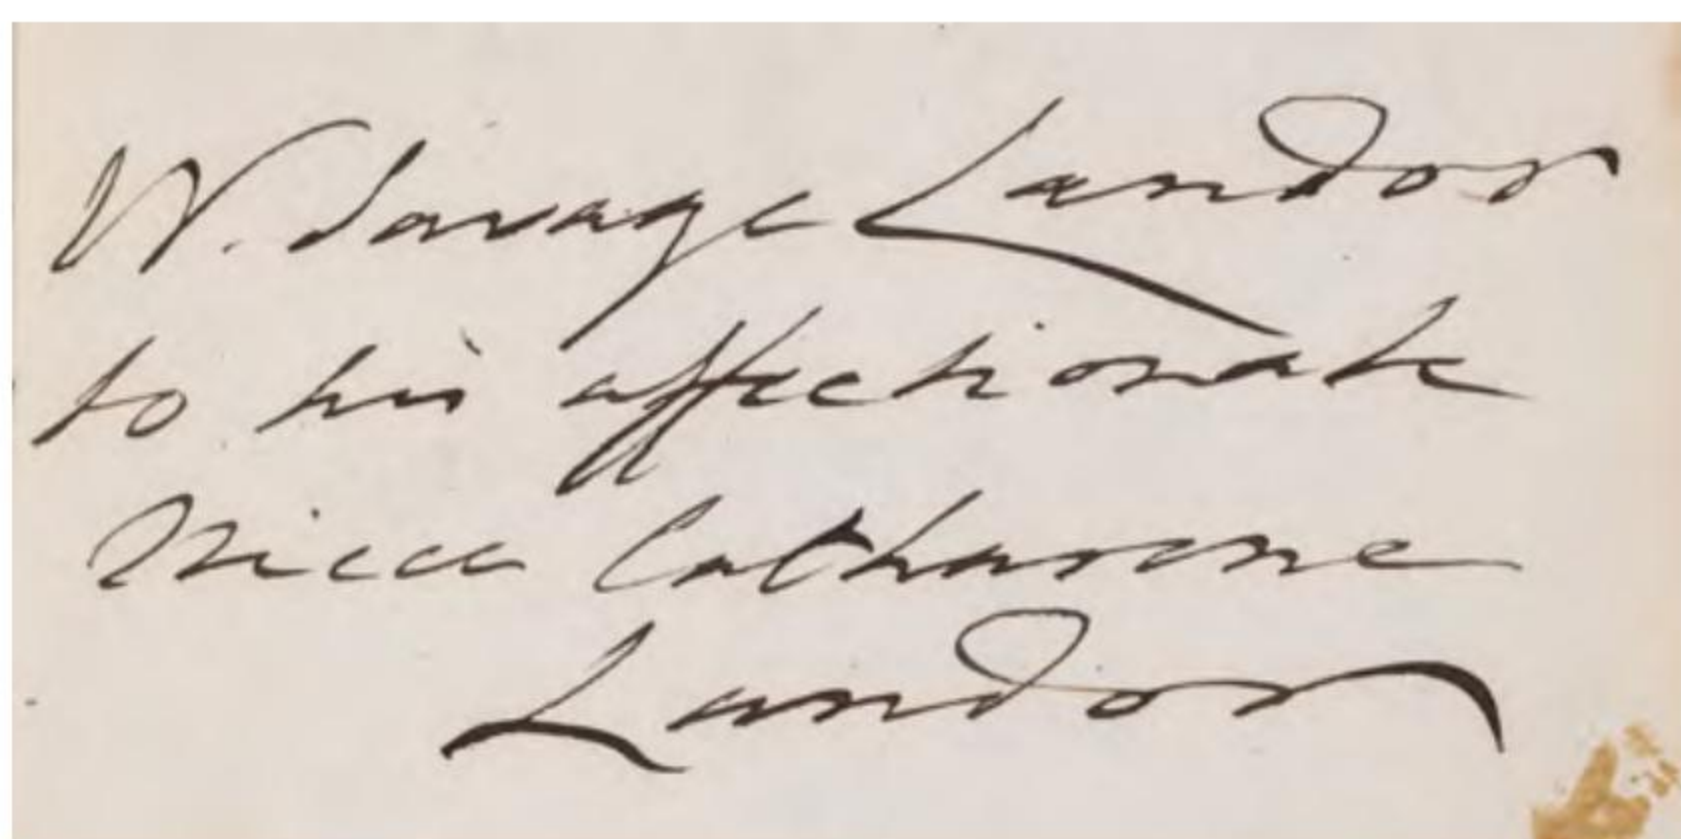 W. Savage Landor
to his affectionate
Niece Catharine
Landor